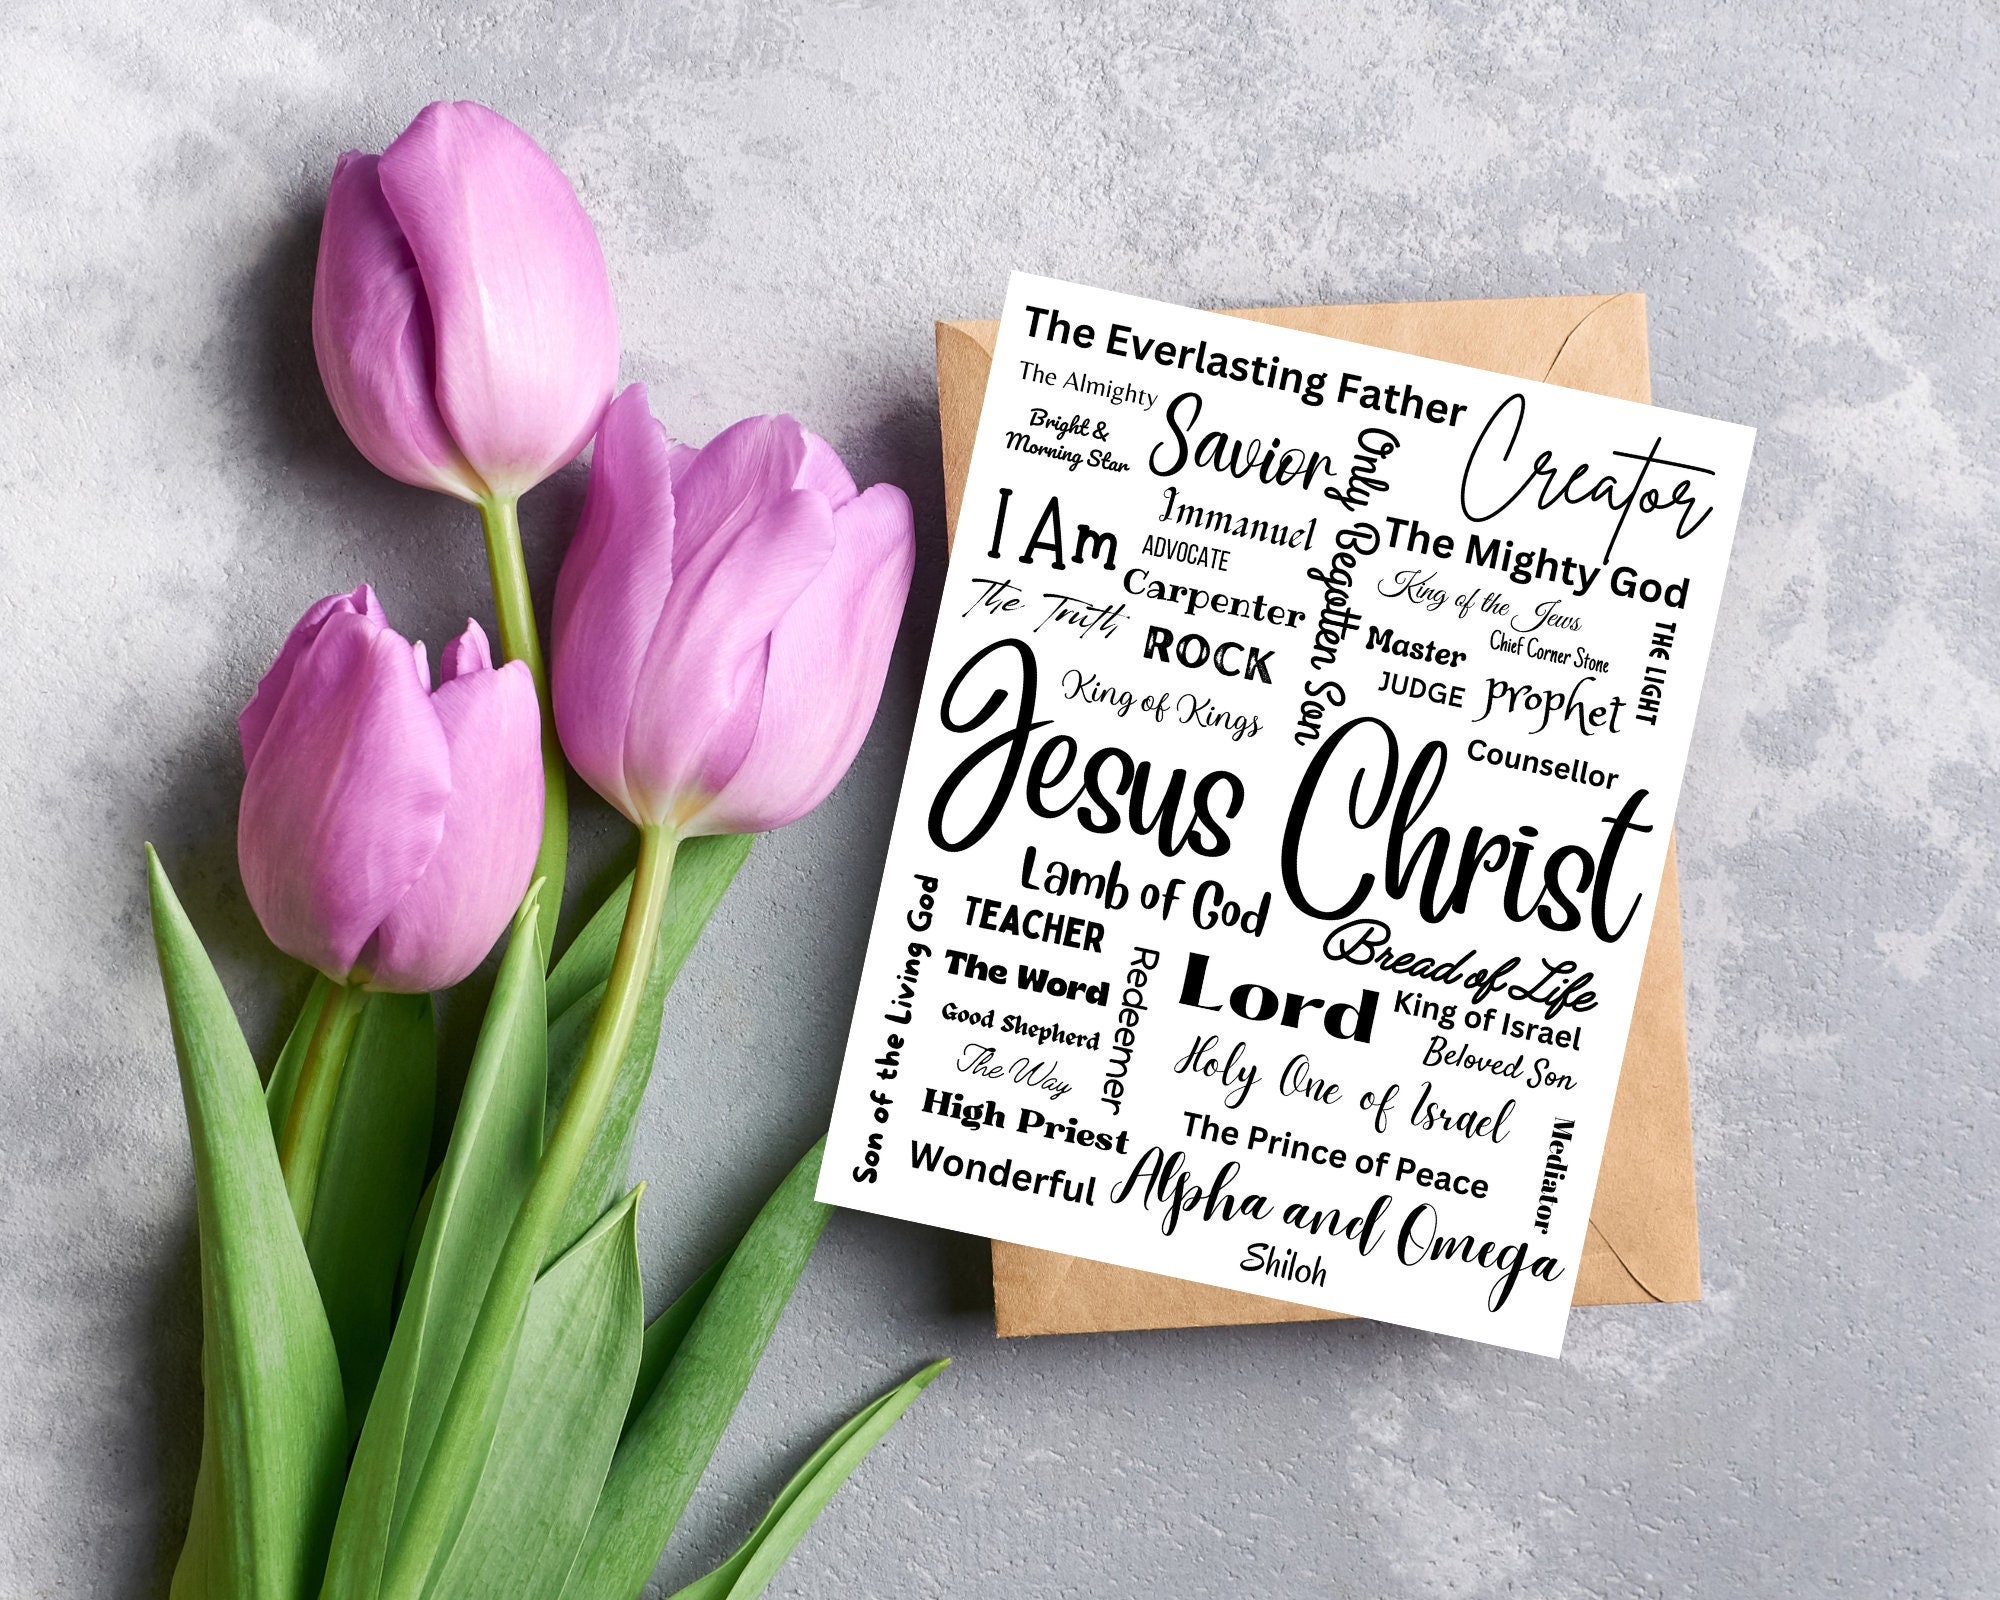 The Everlasting Father
The Almighty
Bright &
Morning Star
Savior
Only Begotten Son
Creator
I Am
Immanuel
ADVOCATE
The Mighty God
King of the Jews
The Truth
Carpenter
ROCK
Master
Chief Corner Stone
THE LIGHT
JUDGE
prophet
King of Kings
Jesus Christ
Counsellor
Lamb of God
TEACHER
Bread of Life
Son of the Living God
The Word
Redeemer
Lord
King of Israel
Good Shepherd
Beloved Son
The Way
Holy One of Israel
High Priest
The Prince of Peace
Mediator
Wonderful
Alpha and Omega
Shiloh